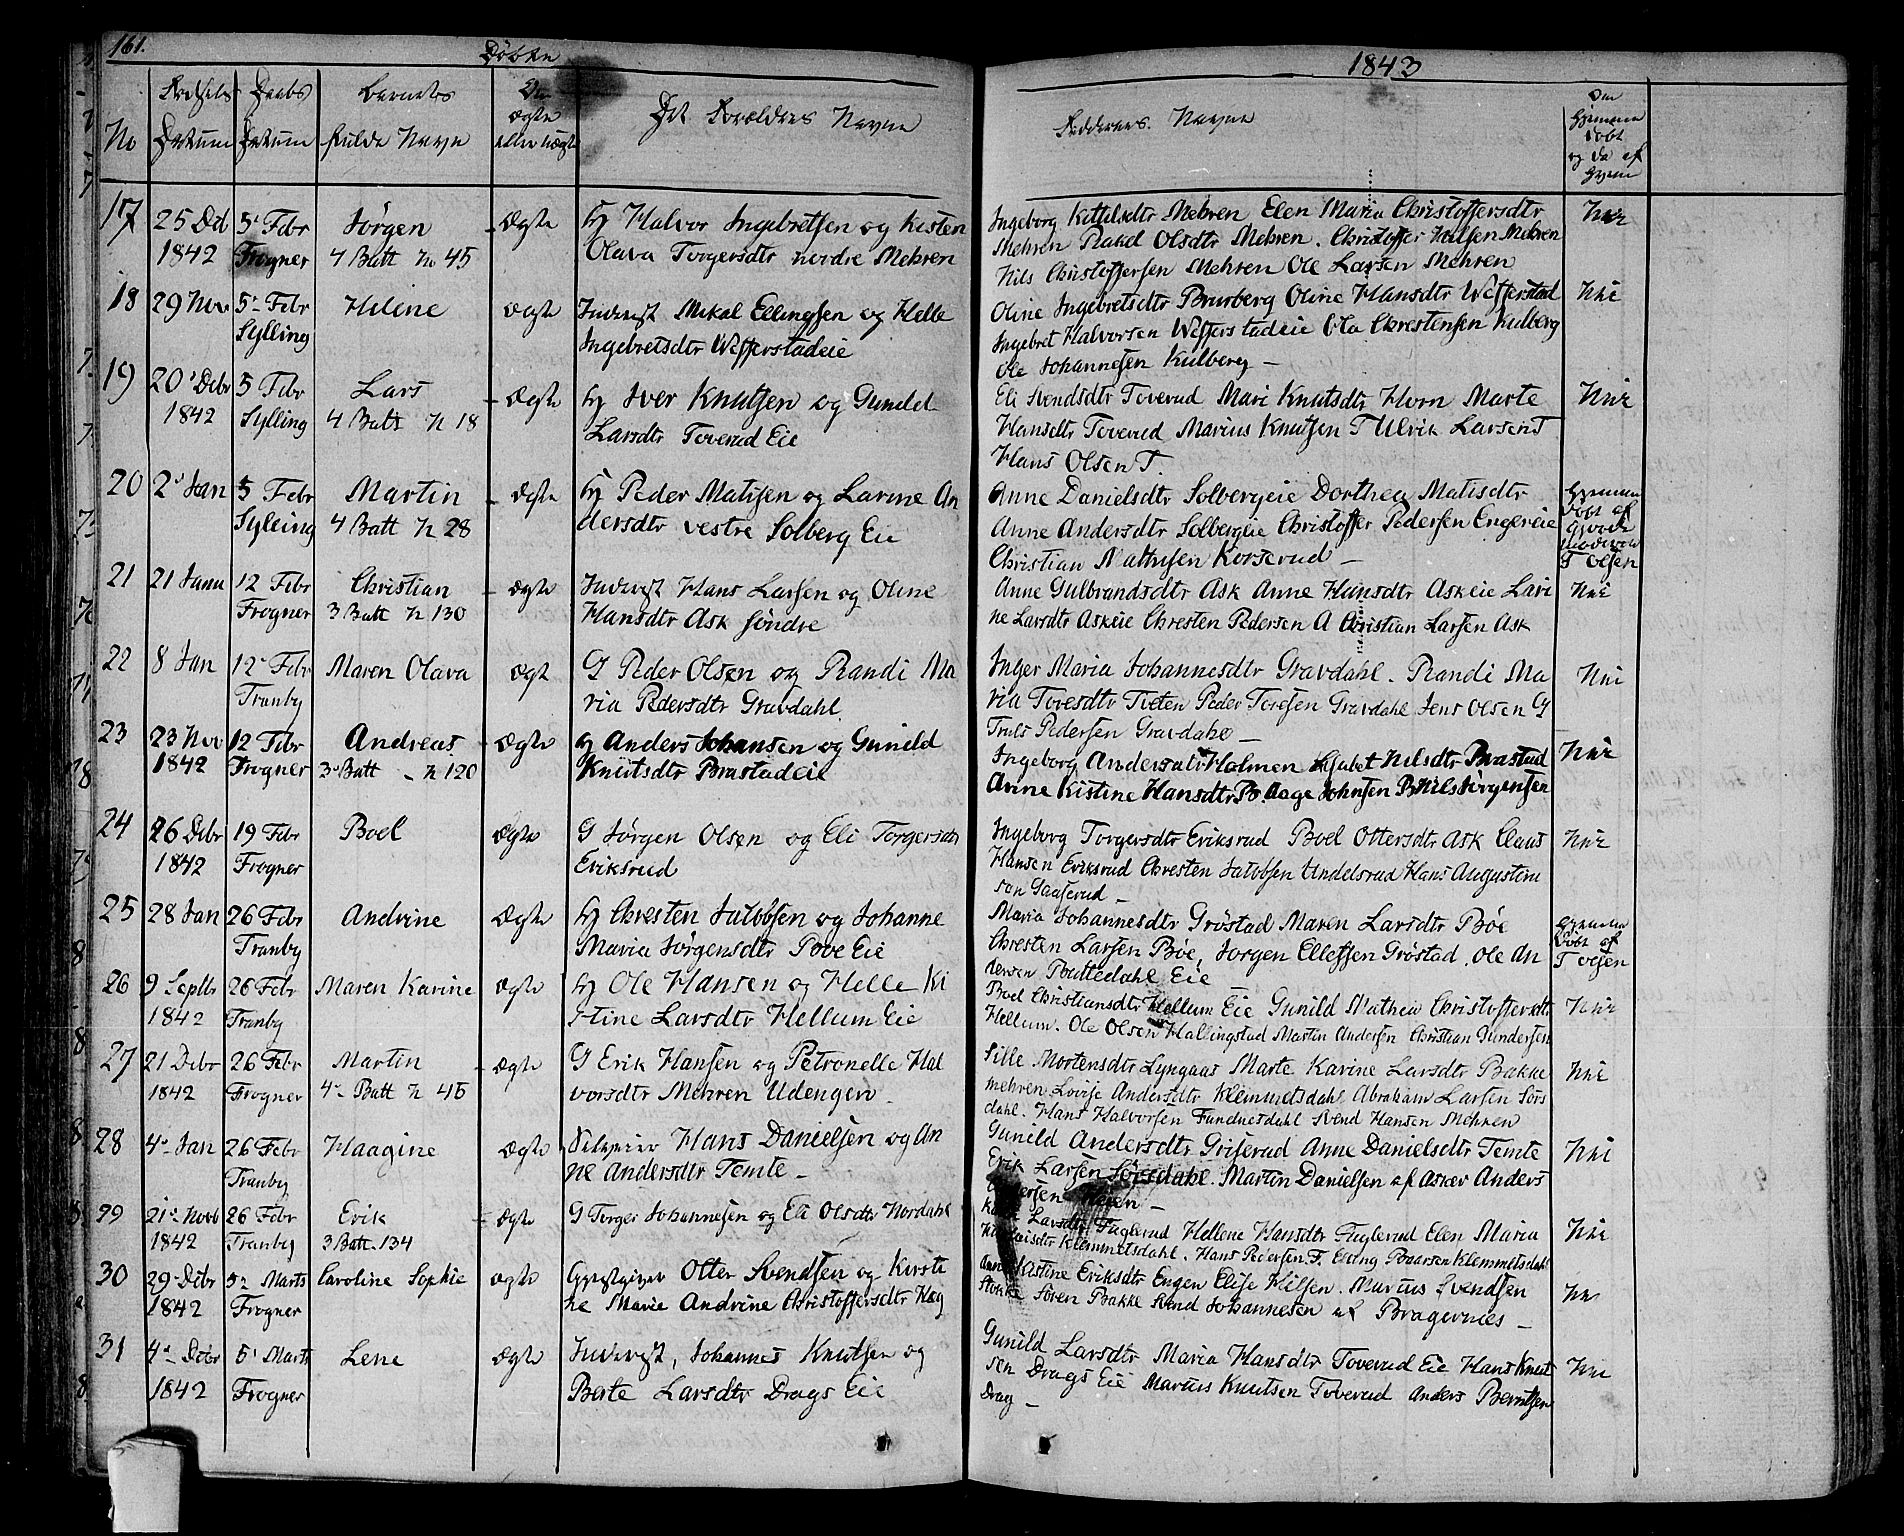 161.
Döbte
1843
No
Fødsels Datum
Daabs Datum
Barnets fulde Navn
Om ægte eller uægte
Forældres Navne
Faddernes Navne
Om Hjemme döbt og da af hvem
17
25 Deb 1842
5' Febr Frogner
Jörgen
4 Batt No 45
Ægte
Hj Halvor Ingebretsen og Kisten
Olava Torgersdtr nordre Mehren
Ingeborg Kittilsdtr Mehren Elen Maria Christoffersdtr
Mehren Rakel Olsdtr Mehren. Christoffer Mehren
Nils Christoffersen Mehren Ole Larsen Mehren
Nei
18
29 Nov
5' Febr Sylling
Heline
Ægte
Inderst Mikal Ellingsen og Helle
Ingebretsdtr Wefferstadeie
Oline Ingebretsdtr Brurberg Oline Hansdtr Wefferstad
Ingebret Halvorsen Wefferstadeie Ola Chrestensen Kulberg
Ole Johannesen Kulberg –
Nei
19
20' Debr 1842
5 Febr Sylling
Lars
4 Batt N 18
Ægte
Hj Iver Knutsen og Gunild
Larsdtr Toverud Eie
Eli Svendsdtr Toverud Mari Knutsdtr Horn Marte
Hansdtr Toverud Marius Knutsen T Ulrik Larsen T
Hans Olsen T.
Nei
20
2' Jan
5 Febr Sylling
Martin
4 Batt N 28
Ægte
Hj Peder Matisen og Larine An
dersdtr vestre Solberg Eie
Anne Danielsdtr Solbergeie Dorthea Matisdtr
Anne Andersdtr Solbergeie Christoffer Pedersen Engereie
Christian Mathisen Korserud –
Hjemme döbt af
T olsen
21
21 Janu
12 Febr Frogner
Christian
3 Batt N 130
Ægte
Inderst Hans Larsen og Oline
Hansdtr Ask söndre
Anne Gulbrandsdtr Ask Anne Hansdtr Askeie Lari
ne Larsdtr Askeie Chresten Pedersen A Christian Larsen Ask
Nei
22
8 Jan
12' Febr Tranby
Maren Olava
Ægt
G Peder Olsen og Randi Ma
ria Pedersdtr Gravdahl
Inger Maria Johannesdtr Gravdahl. Randi Ma
ria Toresdtr Tveten Peder Toresen Gravdahl Jens Olsen G
Truls Pedersen Gravdahl –
Nei
23
23 Nov 1842
12 Febr Frogner
Andreas
3' Batt N 120
Ægte
Hj Anders Johansen og Gunild
Knutsdtr Brastadeie
Ingeborg Andersdtr Holmen Nilsdtr Brastad
Anne Kistine Hansdtr Br. Aage Johnsen B Nils Jörgensen
Nei
24
26 Debr 1842
19 Febr Frogner
Boel
Ægte
G Jörgen Olsen og Eli Torgersdtr
Eriksrud
Ingeborg Torgersdtr Eriksrud Boel Ottersdtr Ask Claus
Hansen Eriksrud Chresten Jakobsen Undelsrud Hans Augustin
sen Gagserud –
Nei
25
28 Jan
26 Febr Tranby
Andrine
Ægte
Hj Chresten Jakobsen og Johanne
Maria Jörgensdtr Pove Eie
Maria Johannesdtr Gröstad Maren Larsdtr Böe
Chresten Larsen Böe, Jorgen Ellefsen Gröstad. Ole An
dersen Eie
Hjemme döbt af
T olsen
26
9 Septbr 1842
26 Febr Tranby
Maren Karine
Ægte
Hj Ole Hansen og Helle Ki
stine Larsdtr Hellum Eie
Boel Christiansdtr Hellum Eie Gunild Mathea Christoffersdtr
Hellum. Ole Olsen Hallingstad Martin Andersen Christian Gundersen
Nei
27
21 Debr 1842
26 Febr Frogner
Martin
4' Batt N 46
Ægte
G Erik Hansen og Petronelle Hal
vorsdtr Mehren Udengen.
Sille Mortensdtr Lyngaas Marte Karine Larsdtr Bakke
mehren Lovise Andersdtr Klemmetsdahl Abraham Larsen Sörs
dahl. Hans Halvorsen Fundnesdahl Svend Hansen Mehren
Nei
28
4' Jan
26 Febr Tranby
Haagine
Ægte
Hans Danielsen og An
ne Andersdtr Temte –
Gunild Andersdtr Griserud Anne Danielsdtr Temte
Erik Larsen Sörsdahl. Martin Danielsen af Asker Anders
Nei
29
21' Novb 1842
26 Febr Tranby
Erik
3 Batt. 134
Ægte
G Torger Johannesen og Eli Olsdtr Nordahl
Larsdtr Fuglerud Hellene Hansdtr Fuglerud Elen Maria
Klemmetsdahl. Hans Pedersen F. Elling Paarsen Klemmetsdahl
Nei
30
29' Debr 1842
5' Marts Frogner
Caroline Sophie
Ægte
Otter Svendsen og Kirsti
ne Marie Andrine Christoffersdtr Hæg
Anne Kistine Eriksdtr Engen Elise Nilsen. Marius Svendsen
Stokke Sören Bakke Svend Johannesen af Bragernes –
Nei
31
4' Debr 1842
5' Marts Frogner
Lene
Ægte
Inderst, Johannes Knutsen og
Berte Larsdtr Drags Eie
Gunild Larsdtr Maria Hansdtr Toverud Eie Hans Knut
sen Drags Eie Marius Knutsen Toverud Anders Berntsen
Drag –
Nei